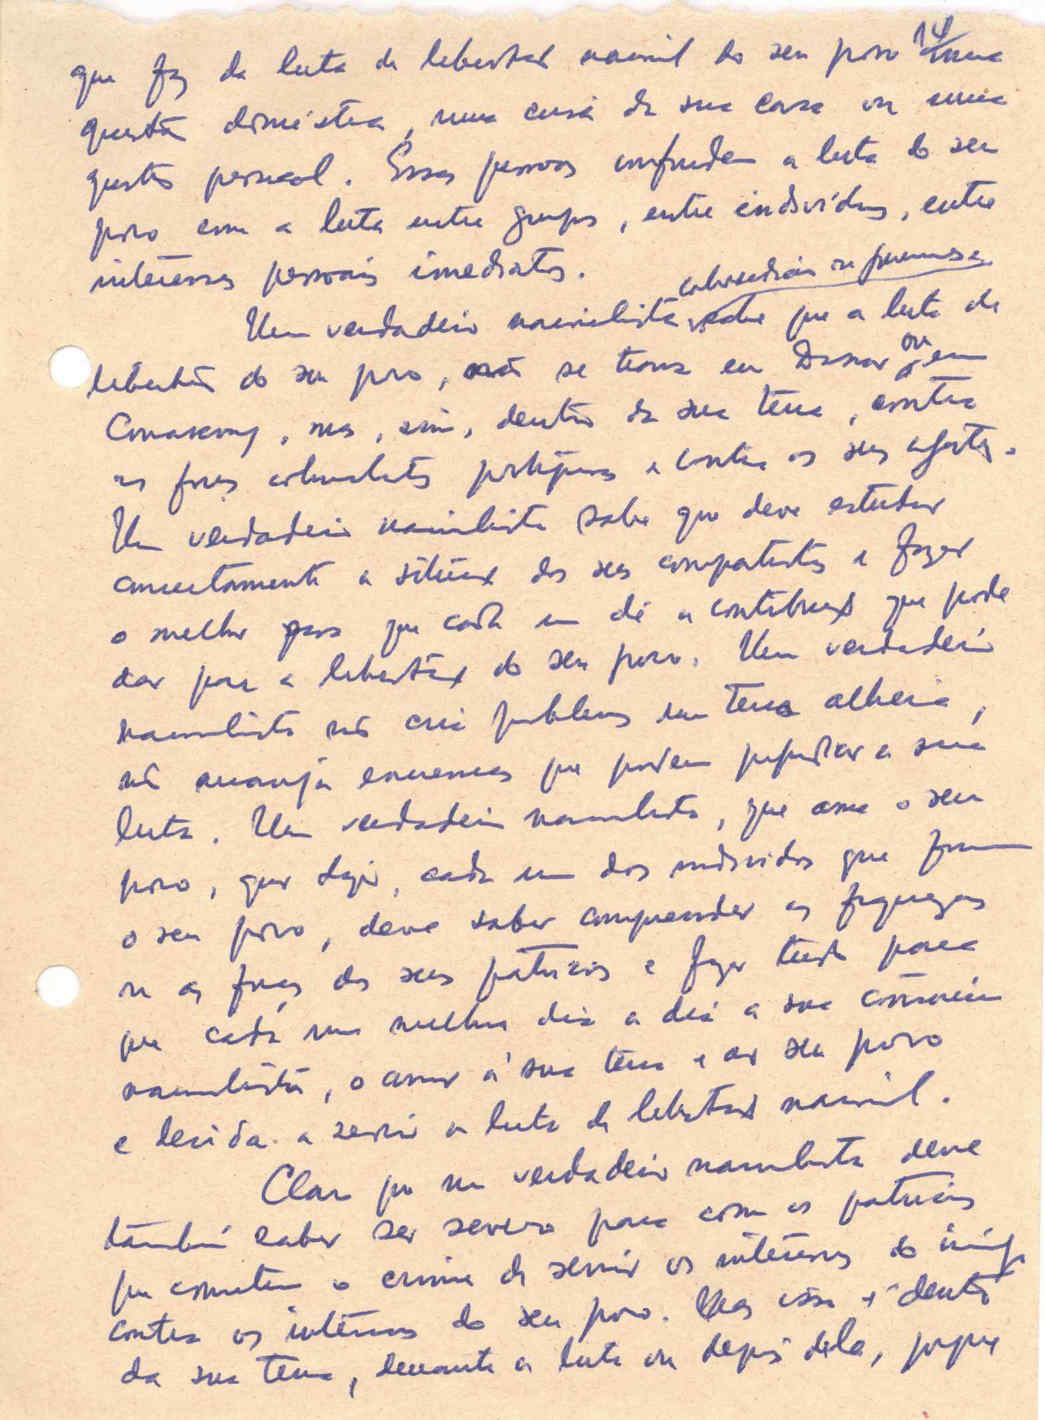 14
que faz da luta de libertação nacional do seu povo uma
questão doméstica, uma coisa da sua casa ou uma
questão pessoal. Essas pessoas confundem a luta do seu
povo com a luta entre grupos, entre indivíduos, entre
interesses pessoais imediatos.
Um verdadeiro nacionalista sabe que a luta de
libertação do seu povo, não se trava em Dakar ou em
Conakry, mas, sim, dentro da sua terra, contra
as forças colonialistas portuguesas e contra os seus agentes.
Um verdadeiro nacionalista sabe que deve estudar
concretamente a situação dos seus compatriotas e fazer
o melhor para que cada um dê a contribuição que pode
dar para a libertação do seu povo. Um verdadeiro
nacionalista não cria problemas em terra alheia,
não arranja encrencas que podem prejudicar a sua
luta. Um verdadeiro nacionalista, que ama o seu
povo, quer dizer, cada um dos indivíduos que formam
o seu povo, deve saber compreender as fraquezas
ou as forças dos seus patrícios e fazer tudo para
que cada um melhore dia a dia a sua consciência
nacionalista, o amor à sua terra e ao seu povo
e decida a servir a luta de libertação nacional.
Claro que um verdadeiro nacionalista deve
também saber ser severo para com os patrícios
que cometem o crime de servir os interesses do inimigo
contra os interesses do seu povo. Mas isso é dentro
da sua terra, durante a luta ou depois dela, porque